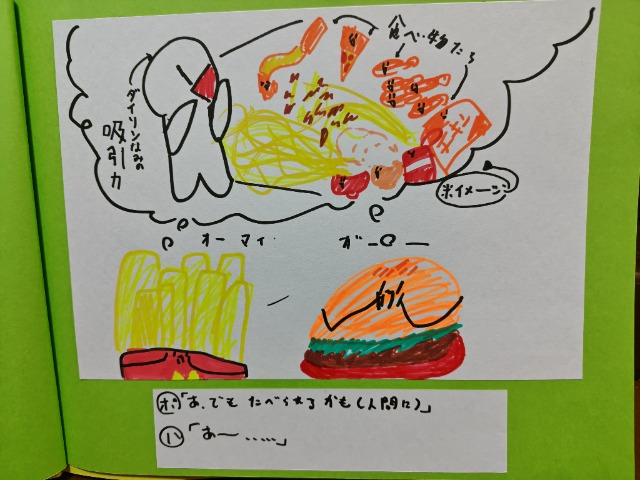 食べ物たち
ダイソンなみの
吸引力
チキン
※イメージ
オーマイ
ガーロー
ポ「あ、でもたべられるかも(人間に)」
ハ「あー……」